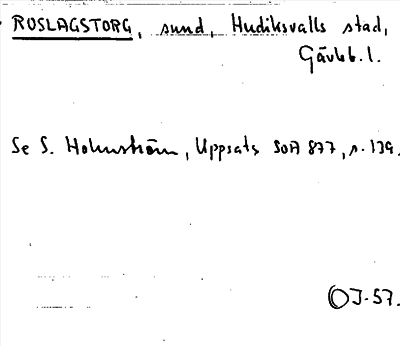 ROSLAGSTORG, sund, Hudiksvalls stad,
Gävleb. l.
Se S. Holmström, Uppsats SOA 877, s. 139.
OJ-57.